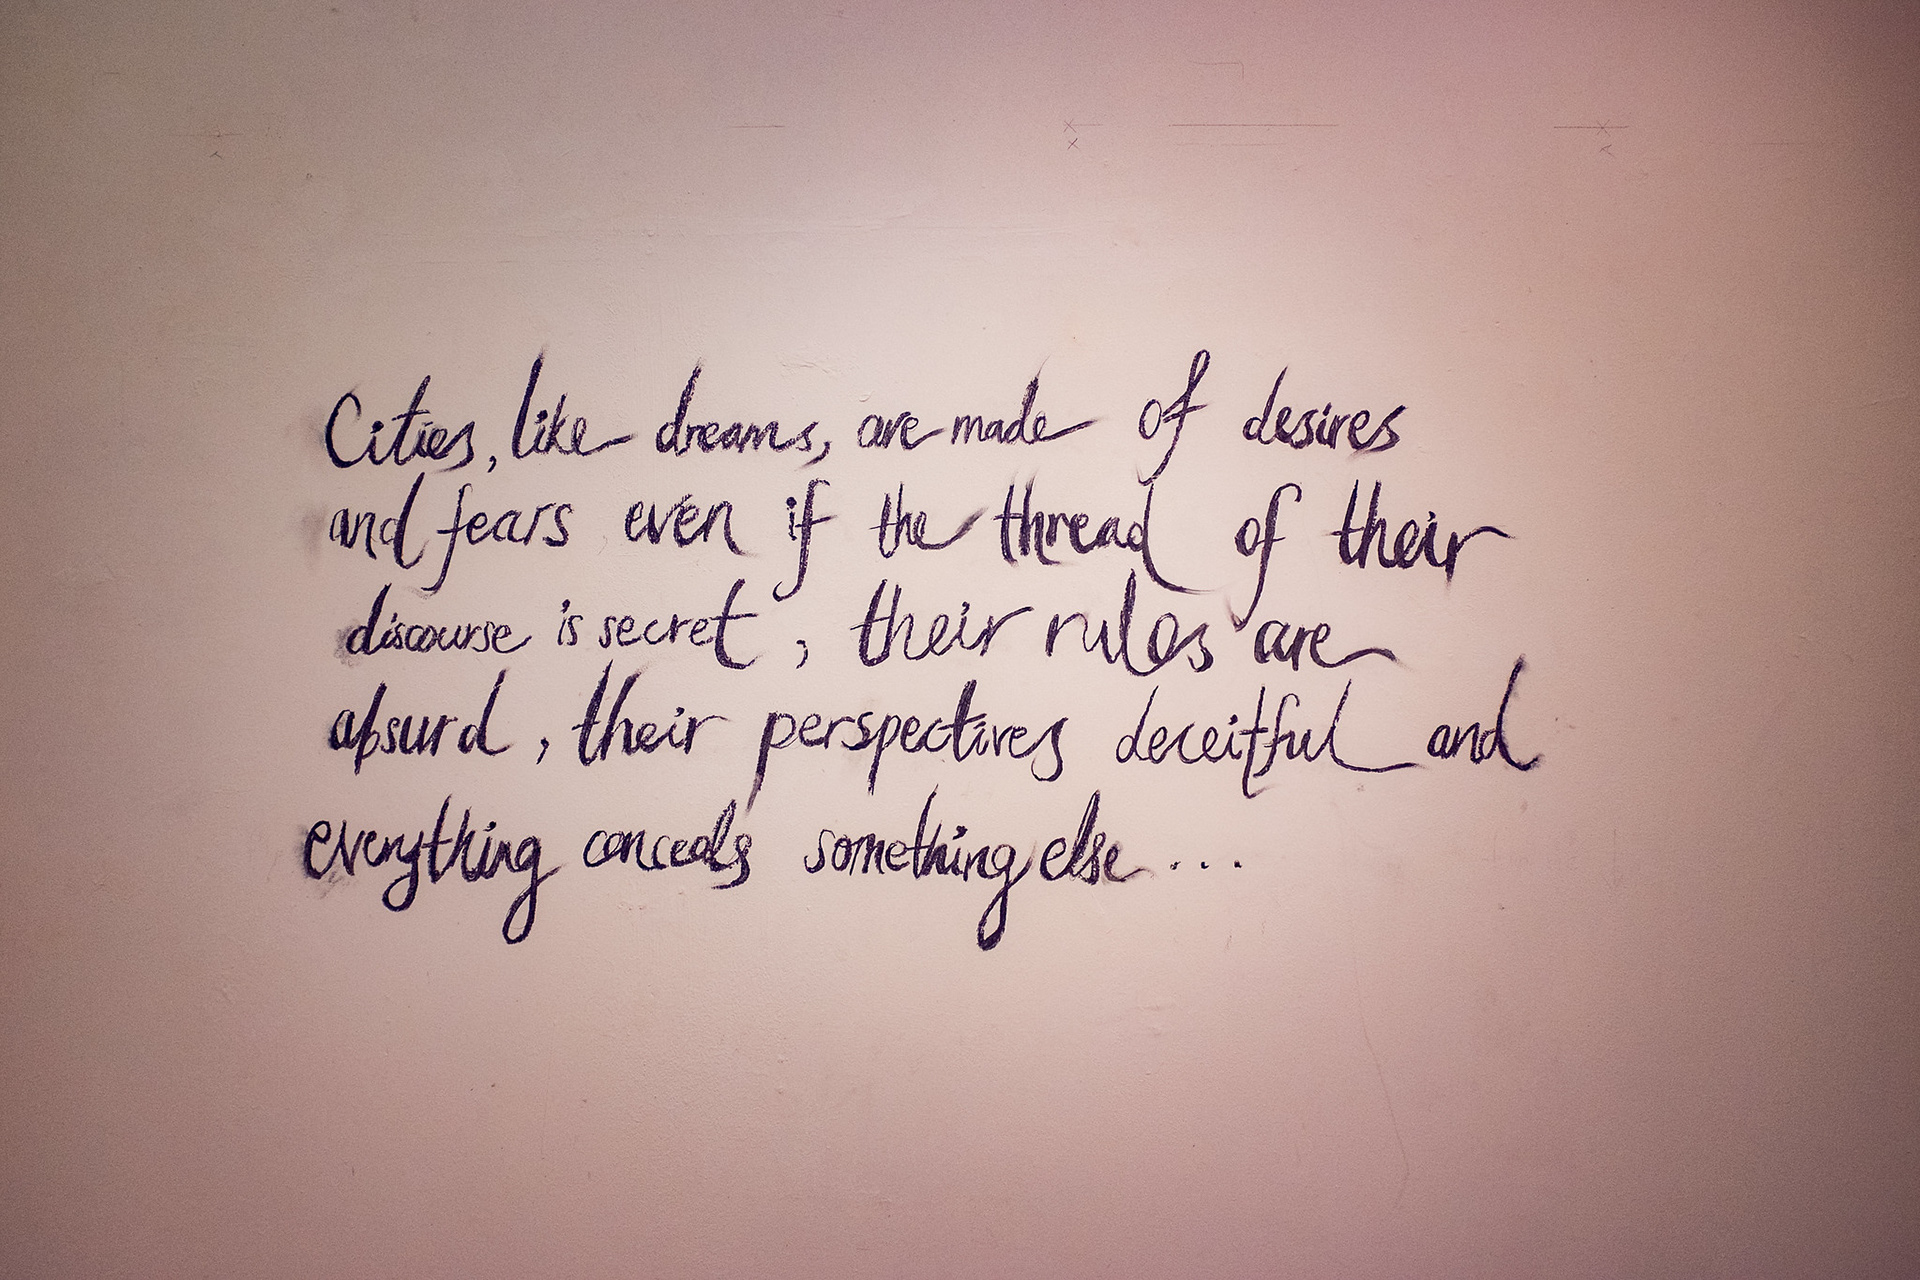 Cities, like dreams, are made of desires
and fears even if the thread of their
discourse is secret, their rules are
absurd, their perspectives deceitful and
everything conceals something else...